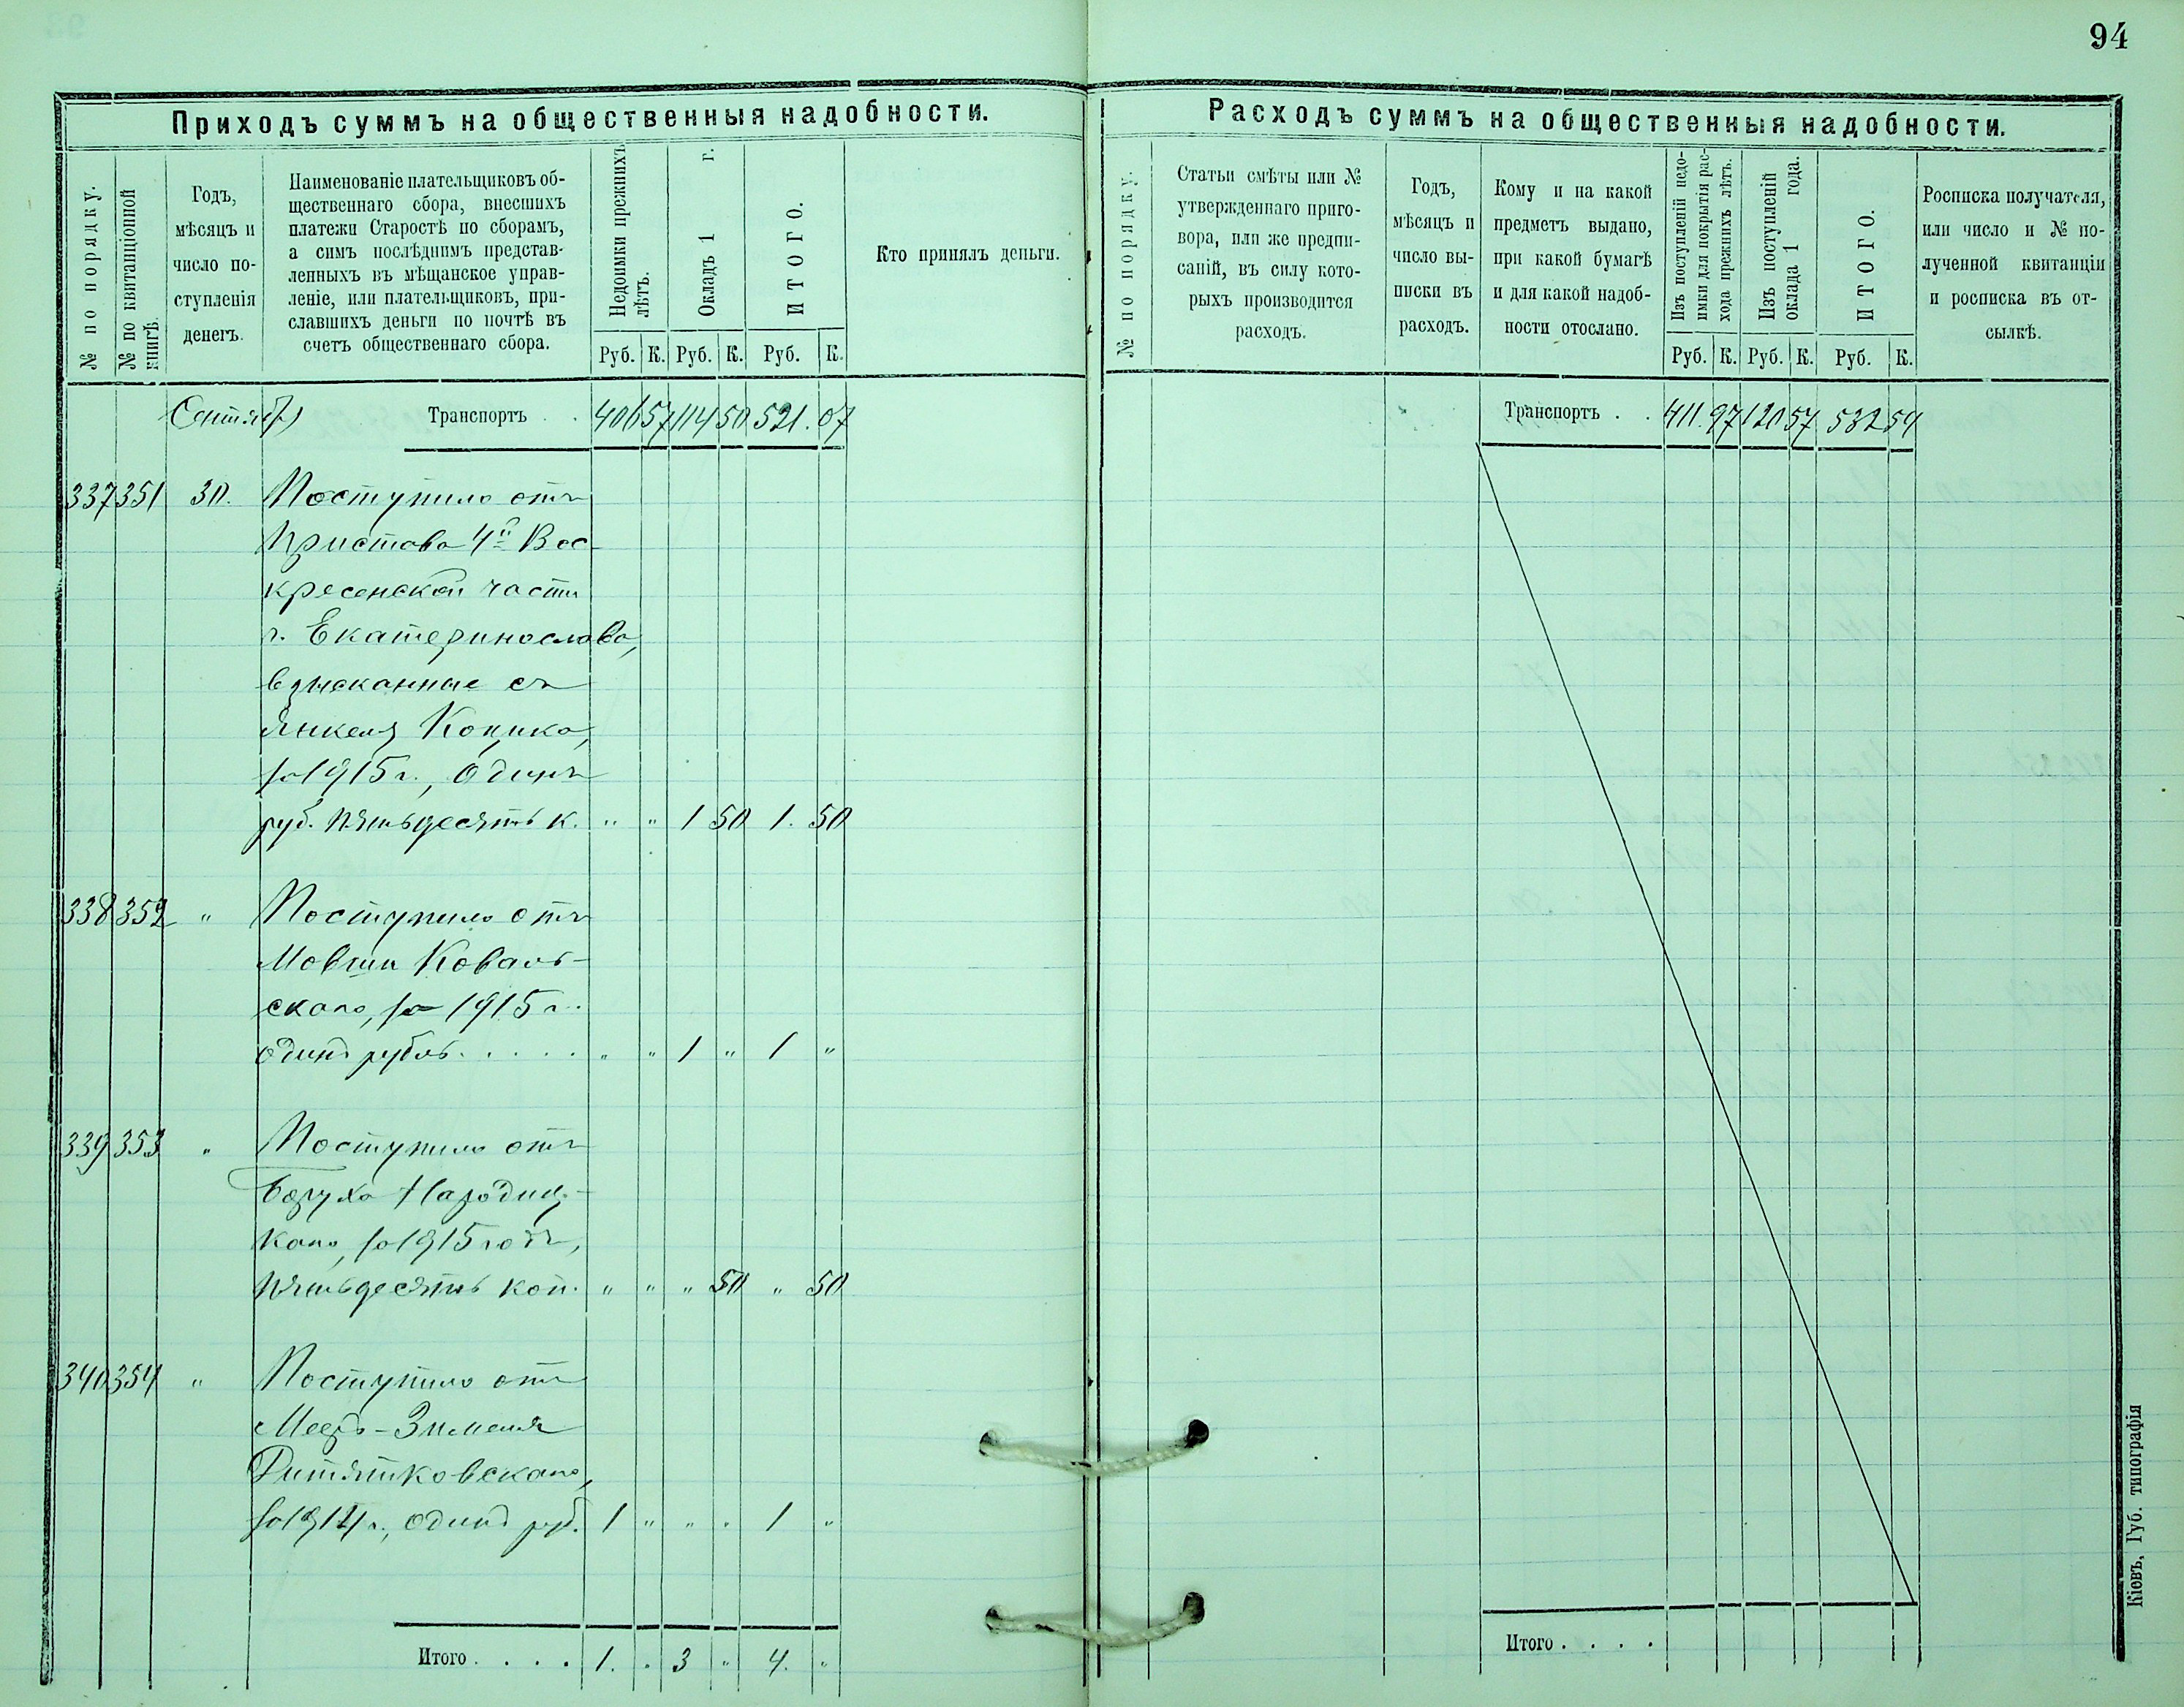 94
Приходъ суммъ на общественныя надобности.
№ по порядку.
№ по квитанціонной
книгѣ.
Годъ,
мѣсяцъ и
число по-
ступленія
денегъ.
Наименованіе плательщиковъ об-
щественнаго сбора, внесшихъ
платежи Старостѣ по сборамъ,
а симъ послѣднимъ представ-
ленныхъ въ мѣщанское управ-
леніе, или плательщиковъ, при-
славшихъ деньги по почтѣ въ
счетъ общественнаго сбора.
Недоимки прежнихъ
лѣтъ.
Окладъ 1 г.
ИТОГО.
Руб. К. Руб. К. Руб. К.
Кто принялъ деньги.
Сентябр Транспортъ . . 406 57 114 50 521. 07
337 351 30. Поступило отъ
Пристава 4й Вос-
кресенской части
г. Екатеринослава,
взысканные съ
Янкеля Копика,
за 1915 г., Одинъ
руб. пятьдесятъ к. " " 1 50 1. 50
338 352 " Поступило отъ
Мовши Коваль-
скаго, за 1915 г.
одинъ рубль. . . . . " " 1 " 1 "
339 353 " Поступило отъ
Боруха Народиц-
каго, за 1915 годъ,
пятьдесятъ коп. " " " 50 " 50
340 354 " Поступило отъ
Мееръ-Зимеля
Дитятковскаго,
за 1914 г., одинъ руб. 1 " " " 1 "
Итого . . . . 1. " 3 " 4. "
Расходъ суммъ на общественныя надобности.
№ по порядку.
Статьи смѣты или №
утвержденнаго приго-
вора, или же предпи-
саній, въ силу кото-
рыхъ производится
расходъ.
Годъ,
мѣсяцъ и
число вы-
писки въ
расходъ.
Кому и на какой
предметъ выдано,
при какой бумагѣ
и для какой надоб-
ности отослано.
Изъ поступленій недо-
имки для покрытія рас-
хода прежнихъ лѣтъ.
Изъ поступленій
оклада 1 года.
ИТОГО.
Руб. К. Руб. К. Руб. К.
Росписка получателя,
или число и № по-
лученной квитанціи
и росписка въ от-
сылкѣ.
Транспортъ . . 411. 97 120 57 532 54
Итого . . . .
Кіевъ, Губ. типографія